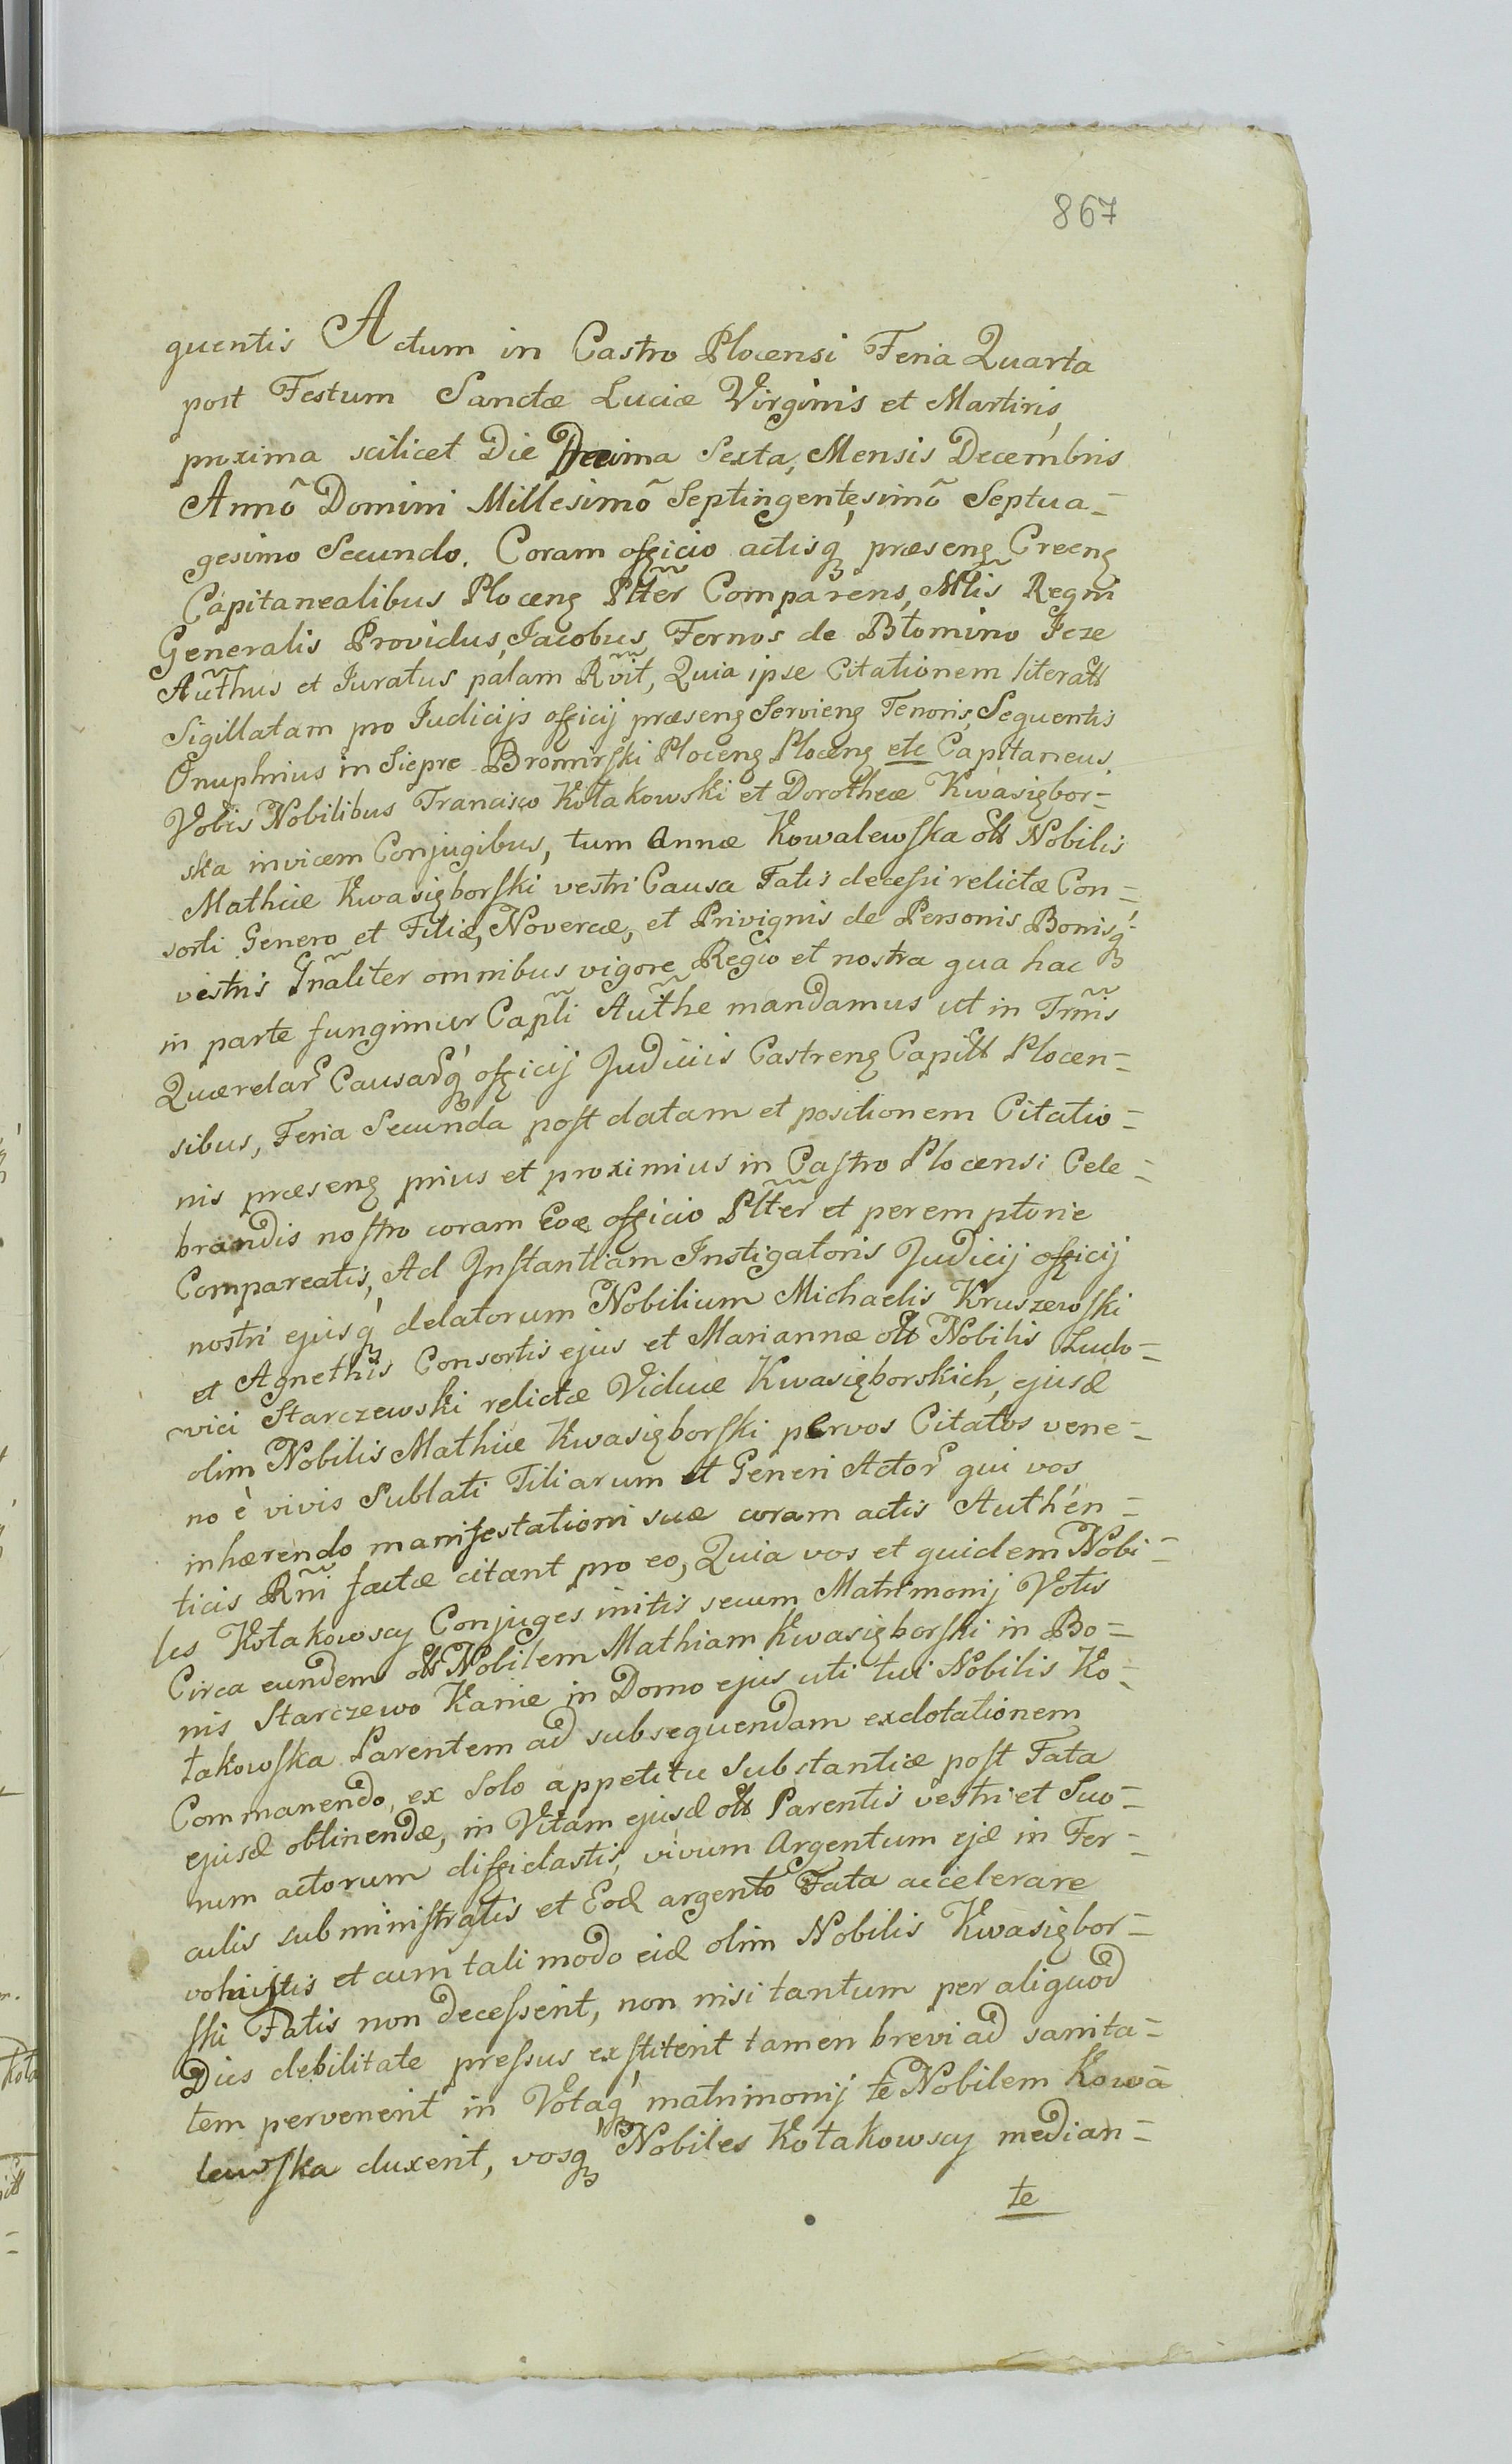 867
quentis Actum in Castro Plocensi Feria Quarta
post Festum Sanctæ Luciæ Virginis et Martiris,
proxima scilicet Die Decima Sexta, Mensis Decembris
Annõ Domini Millesimõ Septingentesimõ Septua=
gesimo Secundo. Coram officio actisq præseng Creeng
Capitanealibus Ploceng Pltẽr Comparens, Mtlis Regni
Generalis Providus, Jacobus Fornos de Błomino Jcze
Autħus et Juratus palam Rvĩt, Quia ipse Citationem literatt
Sigillatam pro Judicijs officij præseng Servieng Tenoris, Sequentis
Onuphrius in Siepre Bromirski Ploceng Ploceng etc Capitaneus.
Vobis Nobilibus Francisco Kołakowski et Dorotheæ Kwasigbor=
ska invicem Conjugibus, tum Annæ Kowalewska ott Nobilis
Mathiæ Kwasigborski vestri Causa Fatis decessi relictæ Con=
sorti Genero et Filiæ, Novercæ, et Privignis de Personis Bonisq
vestris Gñaliter omnibus vigore Regio et nostra qua hac
in parte fungimur Capłi Autħe mandamus ut in Trmĩs
Querelar Causarq officij Judiciis Castreng Capitt Plocen=
sibus, Feria Secunda post datam et positionem Citatio=
nis præseng prius et proximius in Castro Plocensi Cele=
brandis nostro coram Eoæ officio Pltẽr et peremptorie
Compareatis, Ad Instantiam Instigatoris Judicij officij
nostri ejusq delatorum Nobilium Michaelis Kruszewski
et Agnethis Consortis ejus et Mariannæ ott Nobilis Ludo=
vici Starczewski relictæ Viduæ Kwasigborskich, ejusd
olim Nobilis Mathiæ Kwasigborski per vos Citatos vene=
no è vivis Sublati Filiarum et Generi Actor qui vos
inhærendo manifestationi suæ coram actis Authen=
ticis Rñi factæ citant pro eo, Quia vos et quidem Nobi=
les Kołakowscy Conjuges initis secum Matrimonij Votis
Circa eundem ott Nobilem Mathiam Kwasigborski in Bo=
nis Starczewo Kanie in Domo ejus uti tui Nobilis Ko=
łakowska Parentem ad subsequendam exdotationem
Commanendo, ex Solo appetitu Substantiæ post Fata
ejusd obtinendæ, in Vitam ejusd ott Parentis vestri et Suo=
rum actorum diffidastis, vivum Argentum ejd in Fer=
culis subministratis et Eod argento Fata accelerare
voluistis et cum tali modo eid olim Nobilis Kwasigbor=
ski Fatis non decesserit, non nisi tantum per aliquod
Dies debilitate pressus exstiterit tamen brevi ad sanita=
tem pervenerit in Votaq matrimonij te Nobilem Kowa
lewska duxerit, vosq Nobiles Kołakowscy median=
te